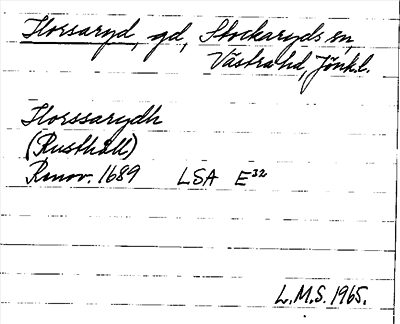 Horsaryd, gd, Stockaryds sn,
Västra hd, Jönk.l.
Horssarydh
(Rusthåll)
Renov. 1689 LSA E³²
L.M.S. 1965.